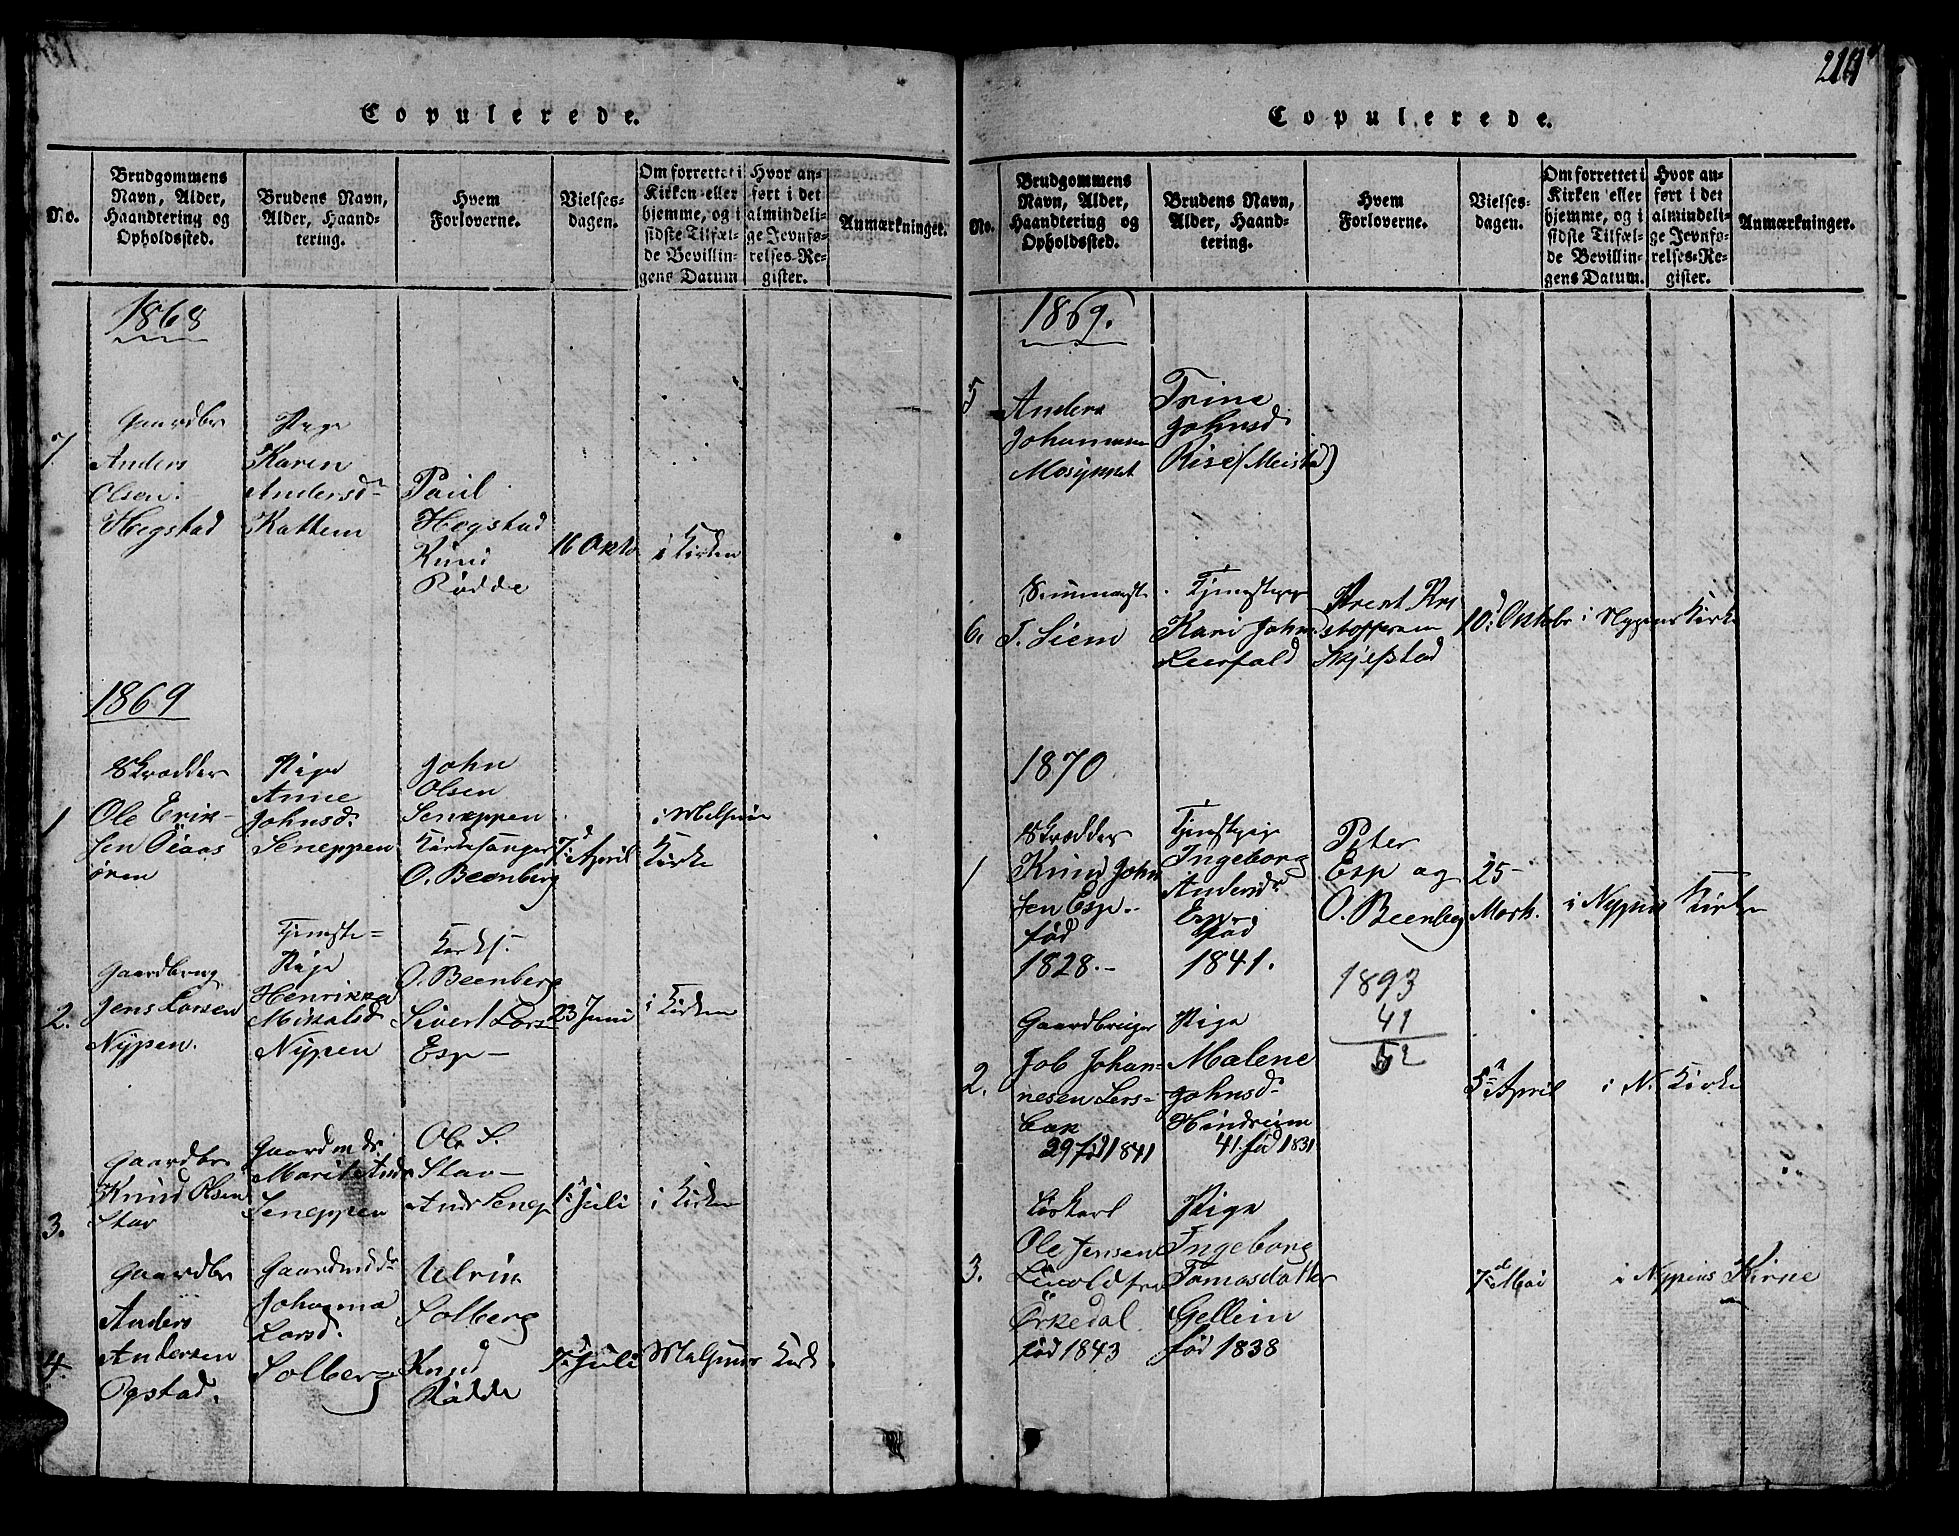 Copulerede.
No.
Brudgommens
Navn, Alder,
Haandtering og
Opholdssted.
Brudens Navn,
Alder, Haand-
tering.
Hvem
Forloverne.
Vielses-
dagen.
Om forrettet i
Kirken eller
hjemme, og i
sidste Tilfæl-
de Bevillin-
gens Datum
Hvor an-
ført i det
almindeli-
ge Jevnfø-
relses-Re-
gister.
Anmærkninger.
1868
7.
Gaardbr
Anders
Olsen
Hegstad
Pige
Karen
Andersd
Kattem
Paul
Hegstad
Knud
Rødde
16 Okto
i Kirken
1869
1
Skrædder
Ole Erik-
sen Øiaas
øren
Pige
Anne
Johnsd.
Seneppen
John
Olsen
Seneppen
Kirkesanger
O. Beenberg
7d April
i Melhuus
Kirke
2.
Gaardbrug
Jens Larsen
Nypen.
Tjeneste=
Pige
Henrikka
Mikalsd
Nypen
Kirks.
O. Beenberg
Sivert Lars
Esp-
23 Juni
i Kirken
3.
Gaardbr
Knud Olsen
Stav
Gaardmds
Marit
Seneppen
Ole S.
Stav-
Ands Senep
1 Juli
i Kirken
4.
Gaardbr
Anders
Andersen
Ogstad.
Gaardmdd
Johanna
Larsd.
Solberg
Ulrik
Solberg
Knud
Rødde
7 Juli
Melhuus Kirk.
Copulerede.
214
No.
Brudgommens
Navn, Alder,
Haandtering og
Opholdssted.
Brudens Navn,
Alder, Haand-
tering.
Hvem
Forloverne.
Vielses-
dagen.
Om forrettet i
Kirken eller
hjemme, og i
sidste Tilfæl-
de Bevillin-
gens Datum.
Hvor an-
ført i det
almindeli-
ge Jevnfø-
relses-Re-
gister.
Anmærkninger.
1869.
5
Anders
Johannesen
Trine
Johnsd.
Rise (Meistad)
6.
T. Liem
Tjenestepige
Kari Johnsd
Leerfald
Brent Kri
stoffersen
Skjefstad
10d Oktobr
i Nypens Kirke
1870
1
Skrædder
Knud John
sen Esp.
fød
1828.-
Tjenstpige
Ingeborg
Andersd
Esp.
fød
1841.
Peter
Esp og
O. Beenberg
25-
Marts.
i Nypens Kirke
1893
41
52
2.
Gaardbruger
Job Johan-
nesen Lers-
bak
29 fød 1841
Pige
Malene
Johnsd.
Hindrum
41. fød 1831
5te April
i N. Kirke
3.
Ole Jensen
fra
Ørkedal
fød 1843
Pige
Ingeborg
Tomasdatter
Gellein
fød 1838
7de Mai
i Nypens Kirke